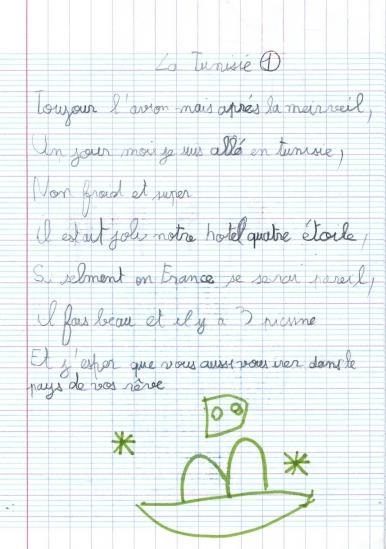 La Tunisie 1
Toujour l'avion mais aprés la meirveil,
Un jour moi je sus allé en tunisie,
Non froid et super
il estait joli notre hotel quatre étoile,
Si selment en France se serai pareil,
il fais beau et il y à 3 picsine
Et j'esper que vous aussi vous irer dans le
pays de vos rêve